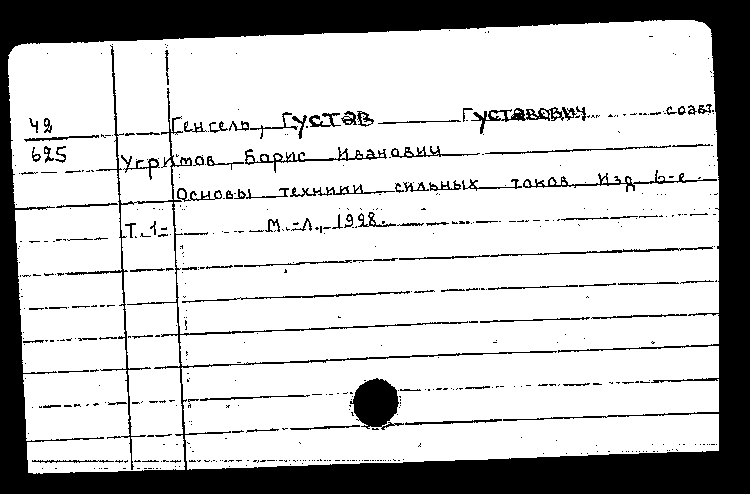 42
625
Генсель, Густав Густавович соавт
Угримов, Борис Иванович
Основы техники сильных токов. Изд 6-е.
Т. 1- М.-Л., 1928.